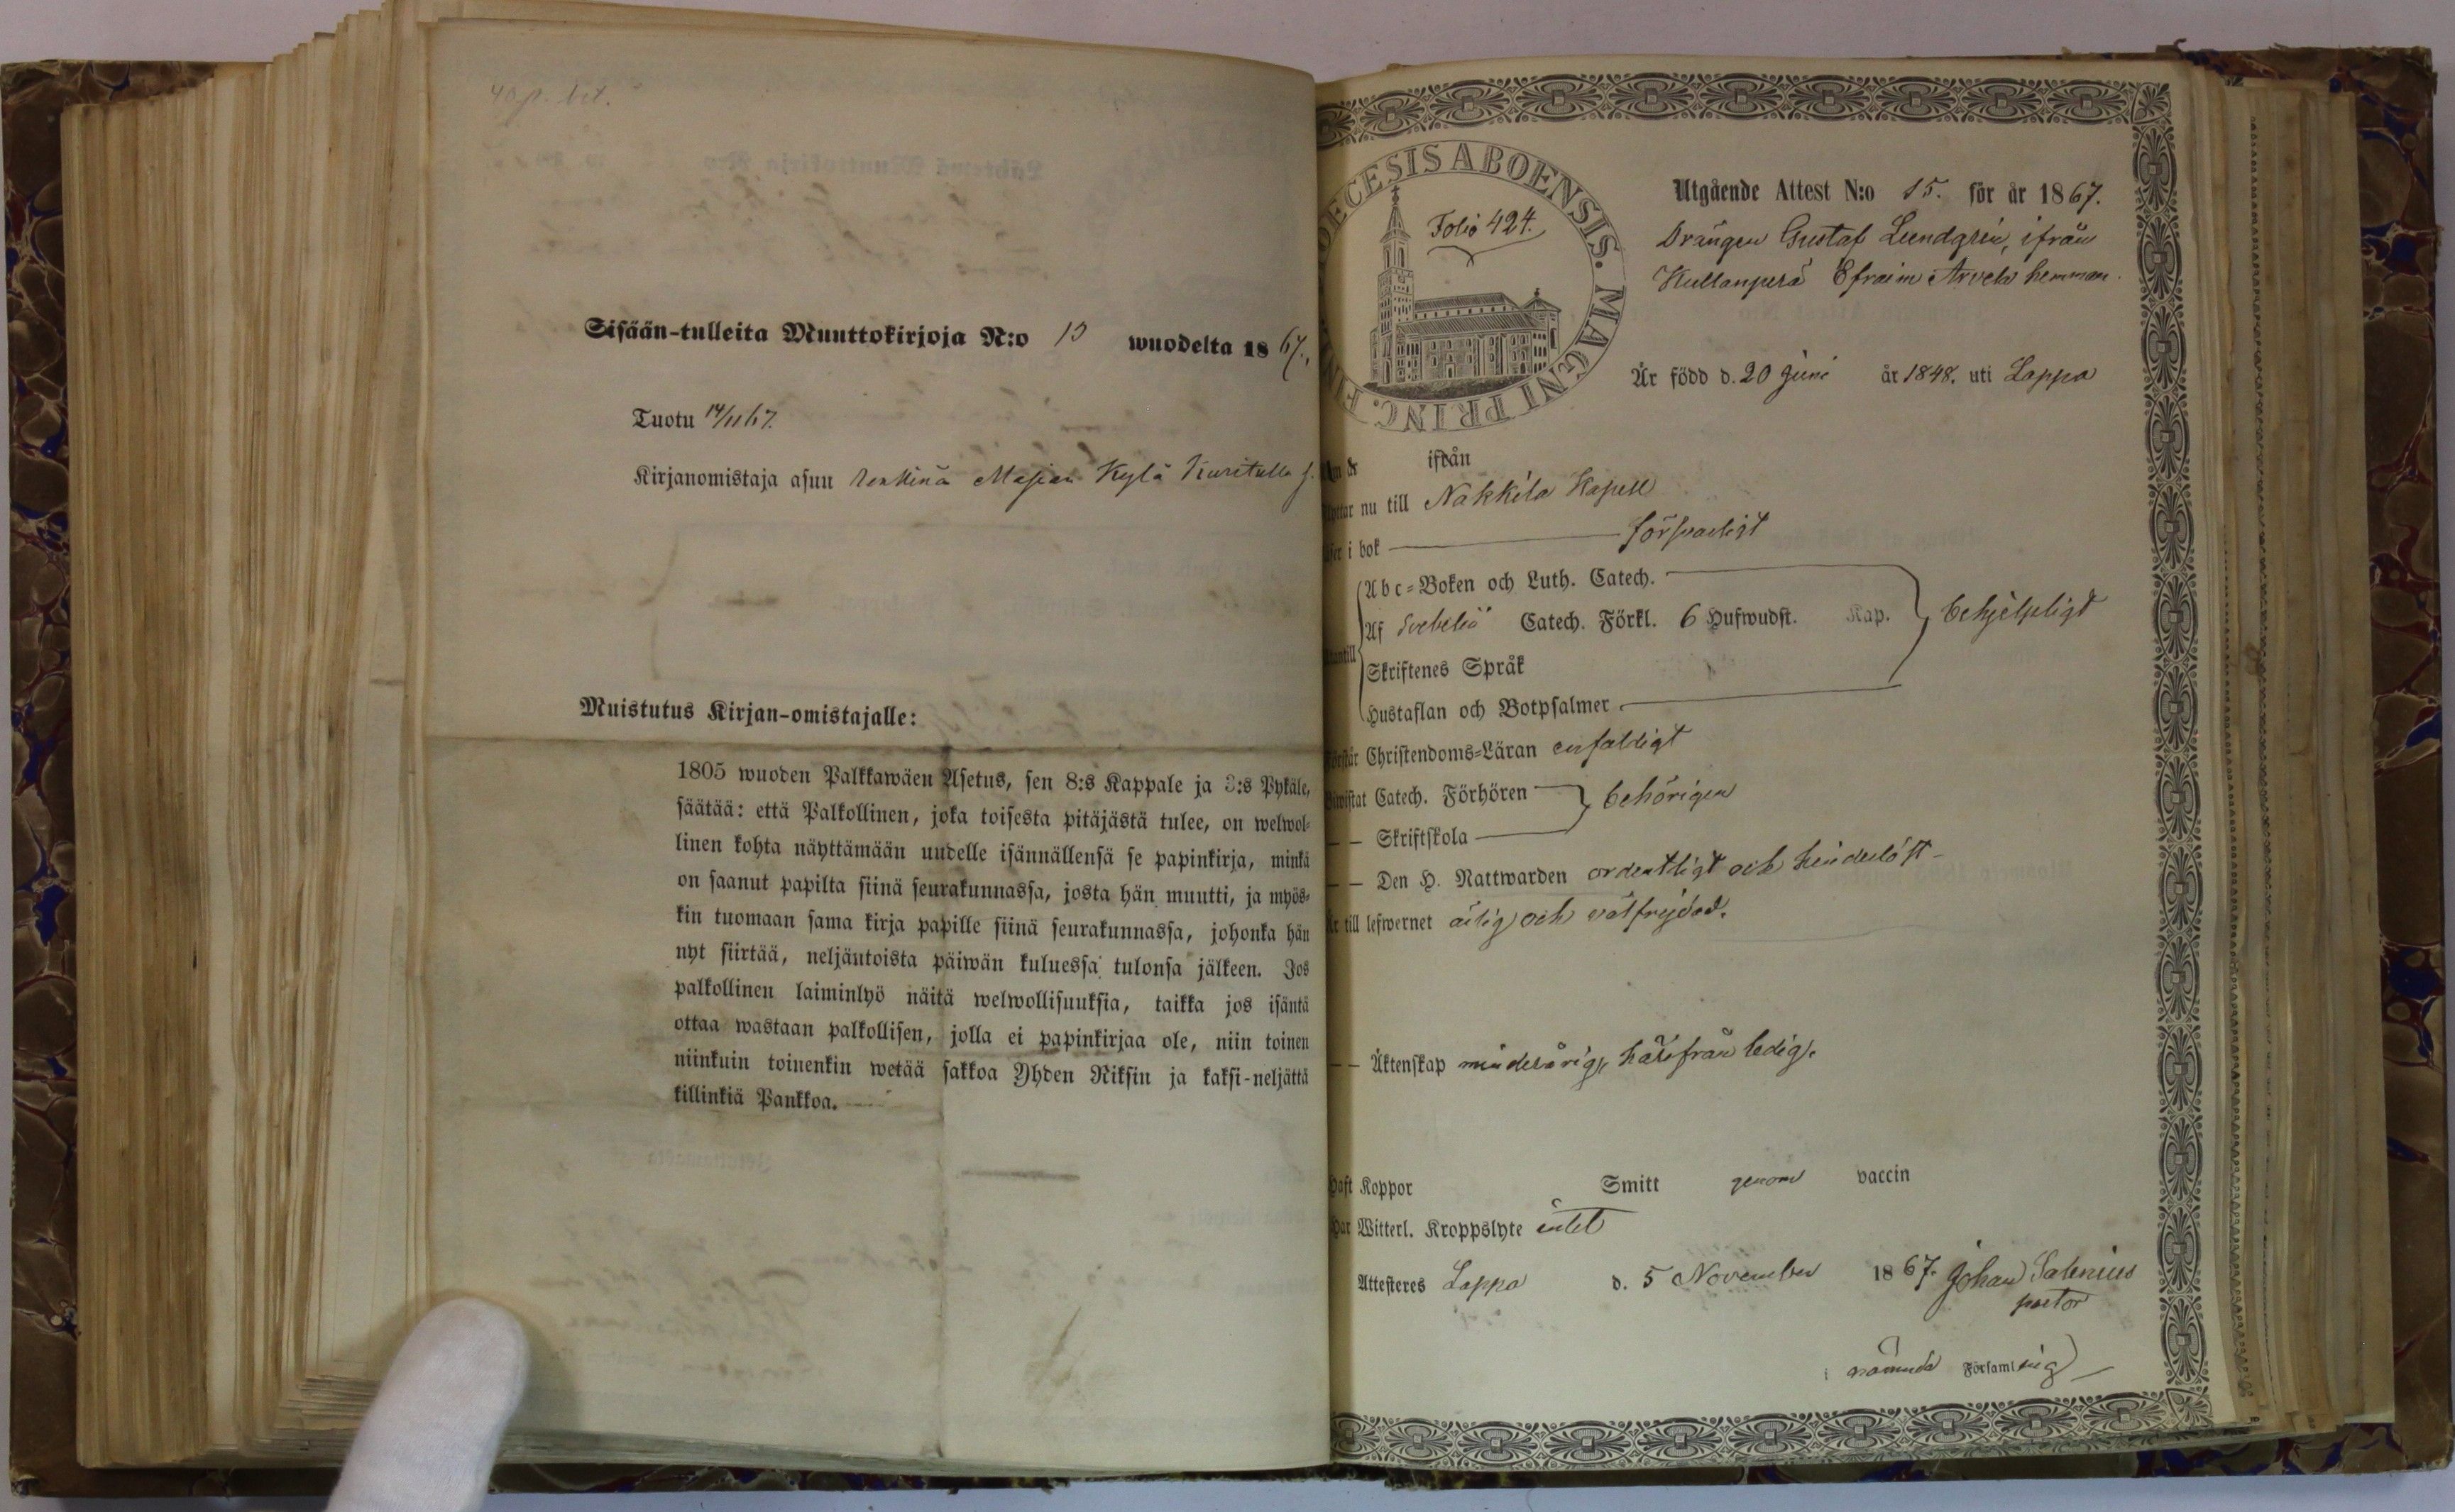 40 p. bet.
Sisään-tulleita Muuttokirjoja N:o 15 wuodelta 1867.
Tuotu 14/11 67.
Kirjanomistaja asuu renkinä Masian Kylä Kuritulla
Muistutus Kirjan-omistajalle:
1805 wuoden Palkkawäen Asetus, sen 8:s Kappale ja 3:s Pykäle,
säätää: että Palkollinen, joka toisesta pitäjästä tulee, on welwol-
linen kohta näyttämään uudelle isännällensä se papinkirja, minkä
on saanut papilta siinä seurakunnassa, josta hän muutti, ja myös-
kin tuomaan sama kirja papille siinä seurakunnassa, johonka hän
nyt siirtää, neljäntoista päiwän kuluessa tulonsa jälkeen. Jos
palkollinen laiminlyö näitä welwollisuuksia, taikka jos isäntä
ottaa wastaan palkollisen, jolla ei papinkirjaa ole, niin toinen
niinkuin toinenkin wetää sakkoa Yhden Riksin ja kaksi-neljättä
killinkiä Pankkoa.
DIOECESIS ABOENSIS. MAGNI PRINC. FIN
Folio 424.
Utgående Attest N:o 15. för år 1867.
Drängen Gustaf Lundgrén, ifrån
Kullanperä Efraim Arvela hemman.
Är född d. 20 Juni år 1848. uti Lappo
ifrån
nu till Nakkila Kapell
i bok försvarligt
Abc-Boken och Luth. Catech.
Af Svebelii Catech. Förkl. 6 Hufwudst. Kap. behjelpligt
Skriftenes Språk
Hustaflan och Botpsalmer
Förstår Christendoms-Läran enfaldigt
Biwistat Catech. Förhören behörigen
— — Skriftskola
— — Den H. Nattwarden ordentligt och hinderlöst
Är till lefwernet ärlig och välfrejdad.
— — Äktenskap minderårig, härifrån ledig.
Haft Koppor Smitt genom vaccin
Har Witterl. Kroppslyte intet
Attesteres Lappo d. 5 November 1867. Johan Salenius
pastor
i nämnde Församling